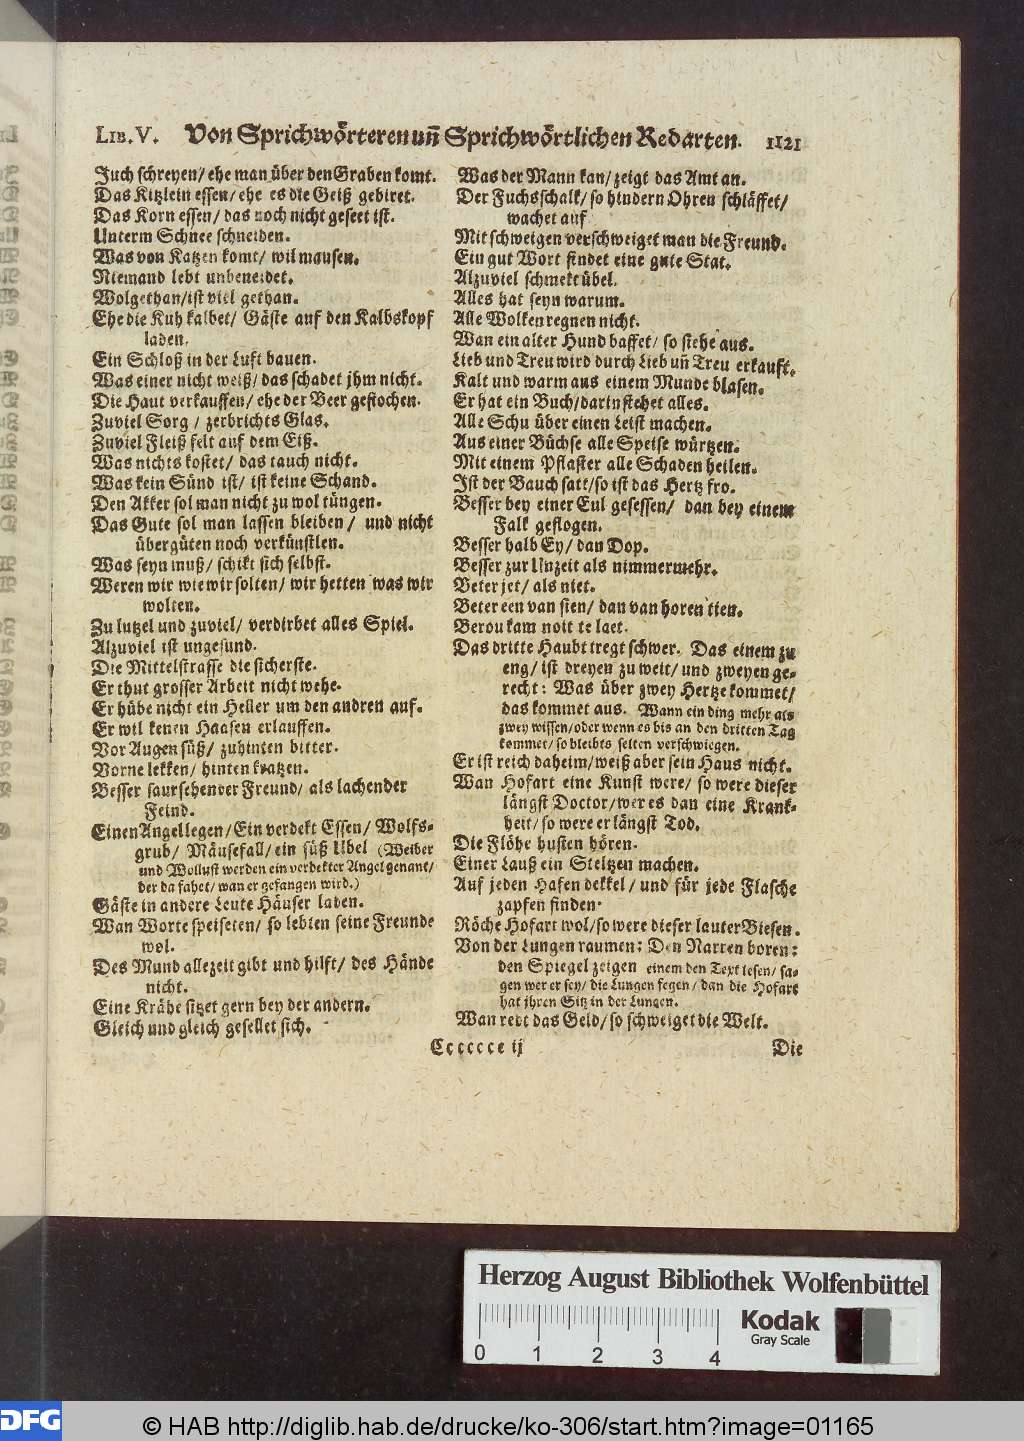 LIB. V. Von Sprichwörteren uñ Sprichwörtlichen Redarten. 1121
Juch schreyen/ ehe man über den Graben komt.
Das Kitzlein essen/ ehe es die Geiß gebiret.
Das Korn essen/ das noch nicht geseet ist.
Unterm Schnee schneiden.
Was von Katzen komt/ wil mausen.
Niemand lebt unbeneidet.
Wolgethan/ist viel gethan.
Ehe die Kuh kalbet/ Gäste auf den Kalbskopf
laden.
Ein Schloß in der Luft bauen.
Was einer nicht weiß/ das schadet jhm nicht.
Die Haut verkauffen/ ehe der Beer gestochen.
Zuviel Sorg / zerbrichts Glas.
Zuviel Fleiß felt auf dem Eiß.
Was nichts kostet/ das tauch nicht.
Was kein Sünd ist/ ist keine Schand.
Den Akker sol man nicht zu wol tüngen.
Das Gute sol man lassen bleiben / und nicht
übergüten noch verkünstlen.
Was seyn muß/ schikt sich selbst.
Weren wir wie wir solten/ wir hetten was wir
wolten.
Zu lutzel und zuviel/ verdirbet alles Spiel.
Alzuviel ist ungesund.
Die Mittelstrasse die sicherste.
Er thut grosser Arbeit nicht wehe.
Er hübe nicht ein Heller um den andren auf.
Er wil kenen Haasen erlauffen.
Vor Augen süß/ zuhinten bitter.
Vorne lekken/ hinten kratzen.
Besser saursehender Freund/ als lachender
Feind.
Einen Angel legen/ Ein verdekt Essen/ Wolfs-
grub/ Mäusefall/ ein süß Ubel (Weiber
und Wollust werden ein verdekter Angel genant/
der da fahet/ wan er gefangen wird.)
Gäste in andere Leute Häuser laden.
Wan Worte speiseten/ so lebten seine Freunde
wol.
Des Mund allezeit gibt und hilft/ des Hände
nicht.
Eine Krähe sitzet gern bey der andern.
Gleich und gleich gesellet sich.
Was der Mann kan/ zeigt das Amt an.
Der Fuchsschalk/ so hindern Ohren schläffet/
wachet auf
Mit schweigen verschweiget man die Freund.
Ein gut Wort findet eine gute Stat.
Alzuviel schmekt übel.
Alles hat seyn warum.
Alle Wolken regnen nicht.
Wan ein alter Hund baffet/ so stehe aus.
Lieb und Treu wird durch Lieb uñ Treu erkauft.
Kalt und warm aus einem Munde blasen.
Er hat ein Buch/darin stehet alles.
Alle Schu über einen Leist machen.
Aus einer Büchse alle Speise würtzen.
Mit einem Pflaster alle Schaden heilen.
Ist der Bauch satt/so ist das Hertz fro.
Besser bey einer Eul gesessen/ dan bey einem
Falk geflogen.
Besser halb Ey/ dan Dop.
Besser zur Unzeit als nimmermehr.
Beter jet/ als niet.
Beter een van sien/ dan van horen tien.
Berou kam noit te laet.
Das dritte Haubt tregt schwer. Das einem zu
eng/ ist dreyen zu weit/ und zweyen ge-
recht: Was über zwey Hertze kommet/
das kommet aus. Wann ein ding mehr als
zwey wissen/oder wenn es bis an den dritten Tag
kommet/ so bleibts selten verschwiegen.
Er ist reich daheim/ weiß aber sein Haus nicht.
Wan Hofart eine Kunst were/ so were dieser
längst Doctor/ wer es dan eine Krank-
heit/ so were er längst Tod.
Die Flöhe husten hören.
Einer Lauß ein Steltzen machen.
Auf jeden Hafen dekkel / und für jede Flasche
zapfen finden.
Röche Hofart wol/so were dieser lauter Biesen.
Von der Lungen raumen: Den Narren boren:
den Spiegel zeigen einem den Text lesen/ sa-
gen wer er sey/ die Lungen fegen/ dan die Hofart
hat jhren Sitz in der Lungen.
Wan redt das Geld/ so schweiget die Welt.
Ccccccc ij
Die
Herzog August Bibliothek Wolfenbüttel
0 1 2 3 4
Kodak
Gray Scale
DFG
© HAB http://diglib.hab.de/drucke/ko-306/start.htm?image=01165